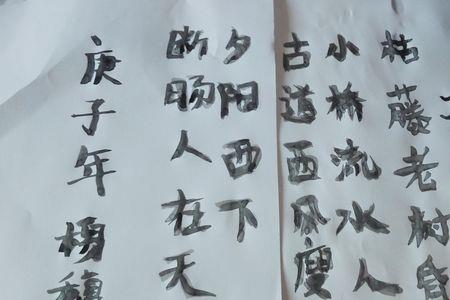 枯藤老树昏
小桥流水人
古道西风瘦
夕阳西下
断肠人在天
庚子年杨